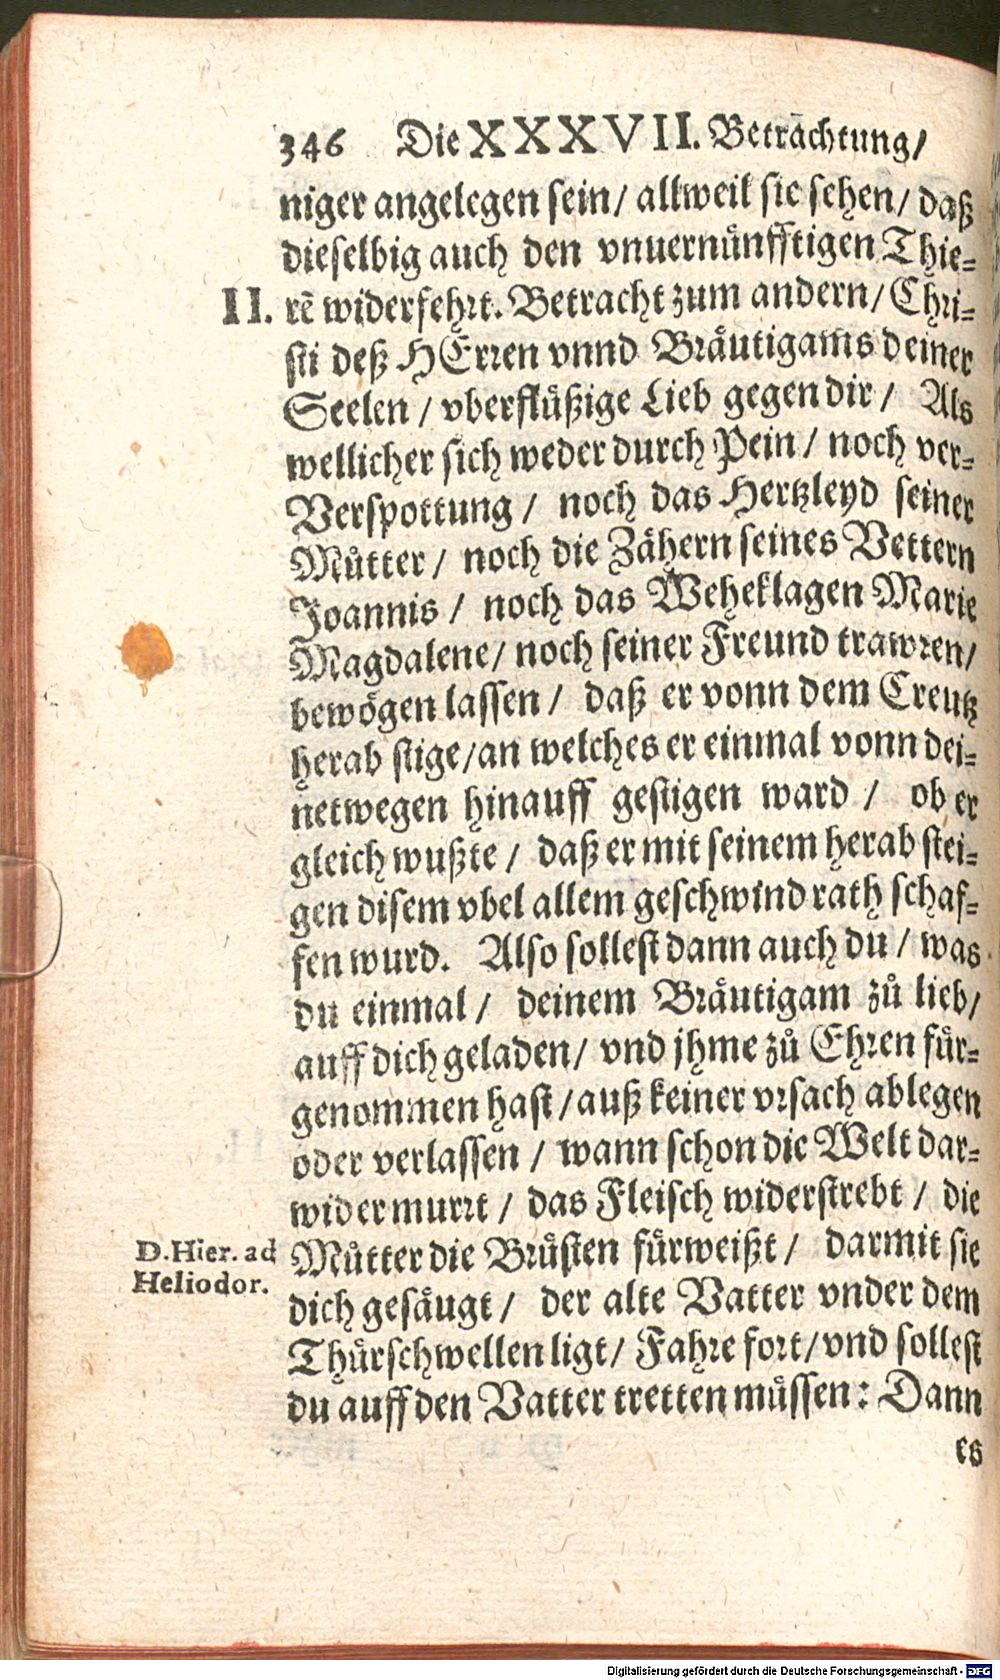 346 Die XXXVII. Betrachtung/
niger angelegen sein/ allweil sie sehen/ daß
dieselbig auch den vnuernünfftigen Thie-
II. rē widerfehrt. Betracht zum andern/ Chri-
sti deß HErren vnnd Bräutigams deiner
Seelen / vberflüßige Lieb gegen dir / Als
wellicher sich weder durch Pein / noch ver-
Verspottung / noch das Hertzleyd seiner
Můtter / noch die Zähern seines Vettern
Joannis / noch das Weheklagen Marie
Magdalene/ noch seiner Freund trawren/
bewögen lassen / daß er vonn dem Creutz
herab stige/an welches er einmal vonn dei-
netwegen hinauff gestigen ward / ob er
gleich wußte / daß er mit seinem herab stei-
gen disem vbel allem geschwind rath schaf-
fen wurd. Also sollest dann auch du / was
du einmal / deinem Bräutigam zů lieb/
auff dich geladen/ vnd jhme zů Ehren für-
genommen hast/auß keiner vrsach ablegen
oder verlassen / wann schon die Welt dar-
wider murrt / das Fleisch widerstrebt / die
D. Hier. ad Můtter die Brüsten fürweißt / darmit sie
Heliodor. dich gesäugt / der alte Vatter vnder dem
Thürschwellen ligt/ Fahre fort/vnd sollest
du auff den Vatter tretten müssen: Dann
es
Digitalisierung gefördert durch die Deutsche Forschungsgemeinschaft - DFG